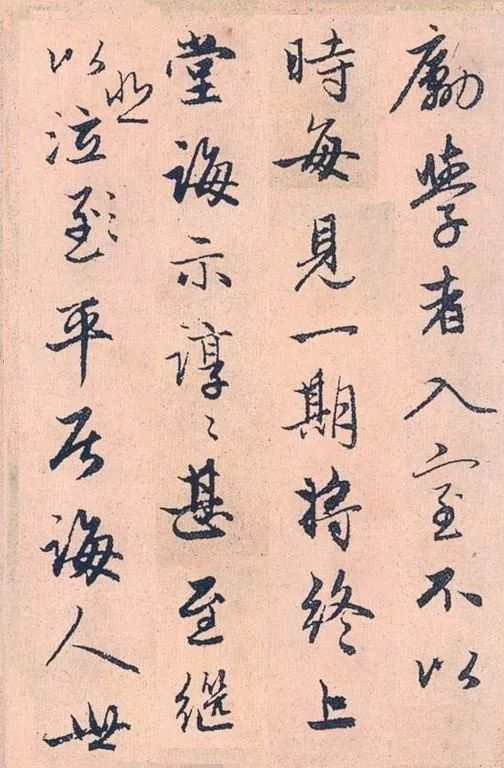 勵學者入室不以
時每見一期將終上
堂誨示諄〻甚至繼
以悲泣至平居誨人世